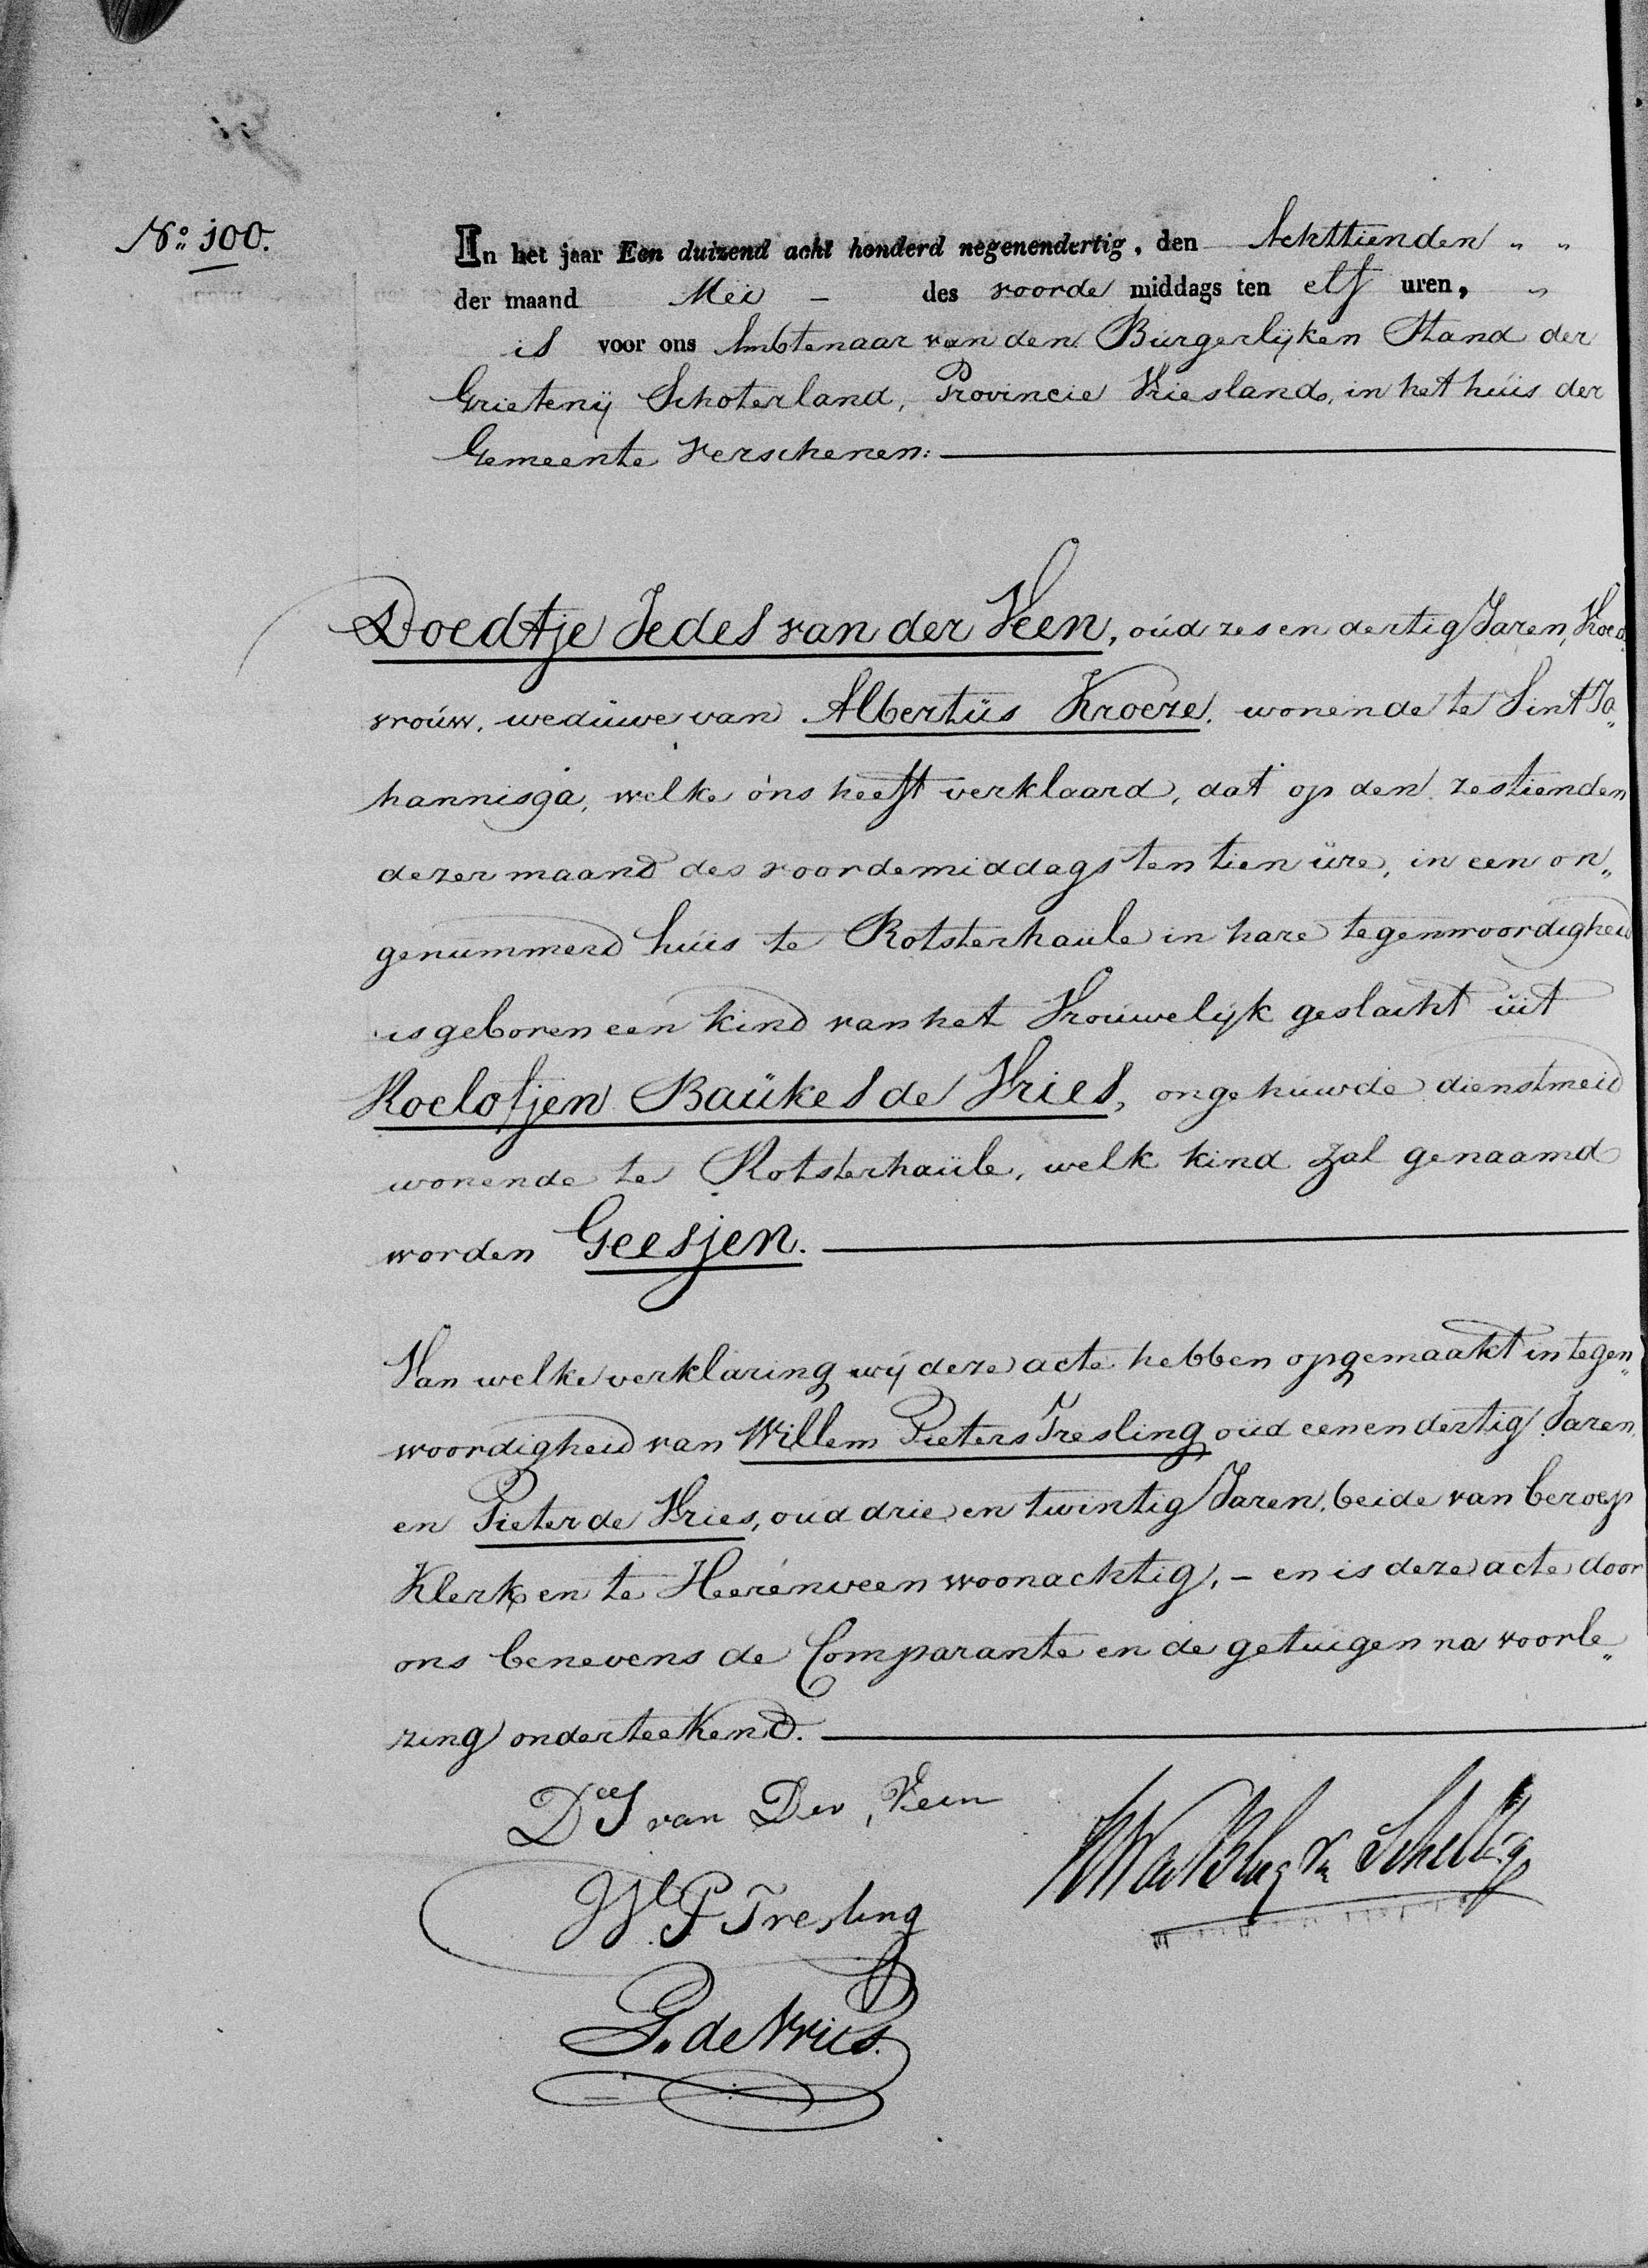 No. 100.
In het jaar Een duizend acht honderd negenendertig, den Achttienden " "
der maand Mei - des voorde middags ten elf uren, "
is voor ons Ambtenaar van den Burgerlijken Stand der
Grietenij Schoterland, Provincie Vriesland, in het huis der
Gemeente verschenen:
Doedtje Jedes van der Veen, oud zes en dertig Jaren, Vroed
vrouw, weduwe van Albertus Kroeze, wonende te Sint Jo„
hannisga, welke ons heeft verklaard, dat op den zestienden
dezer maand des voordemiddags ten tien ure, in een on„
genummerd huis te Rotsterhaule in hare tegenwoordigheid
is geboren een kind van het Vrouwelijk geslacht uit
Roelofjen Baukes de Vries, ongehuwde dienstmeid
wonende te Rotsterhaule, welk kind zal genaamd
worden Geesjen.
Van welke verklaring wij deze acte hebben opgemaakt in tegen„
woordigheid van Willem Pieters Tresling oud eenendertig Jaren,
en Pieter de Vries, oud drie en twintig Jaren, beide van beroep
Klerk en te Heerenveen woonachtig, - en is deze acte door
ons benevens de Comparante en de getuigen na voorle„
zing onderteekend.
D J van Der Veen
WP Tresling
P. de Vries.